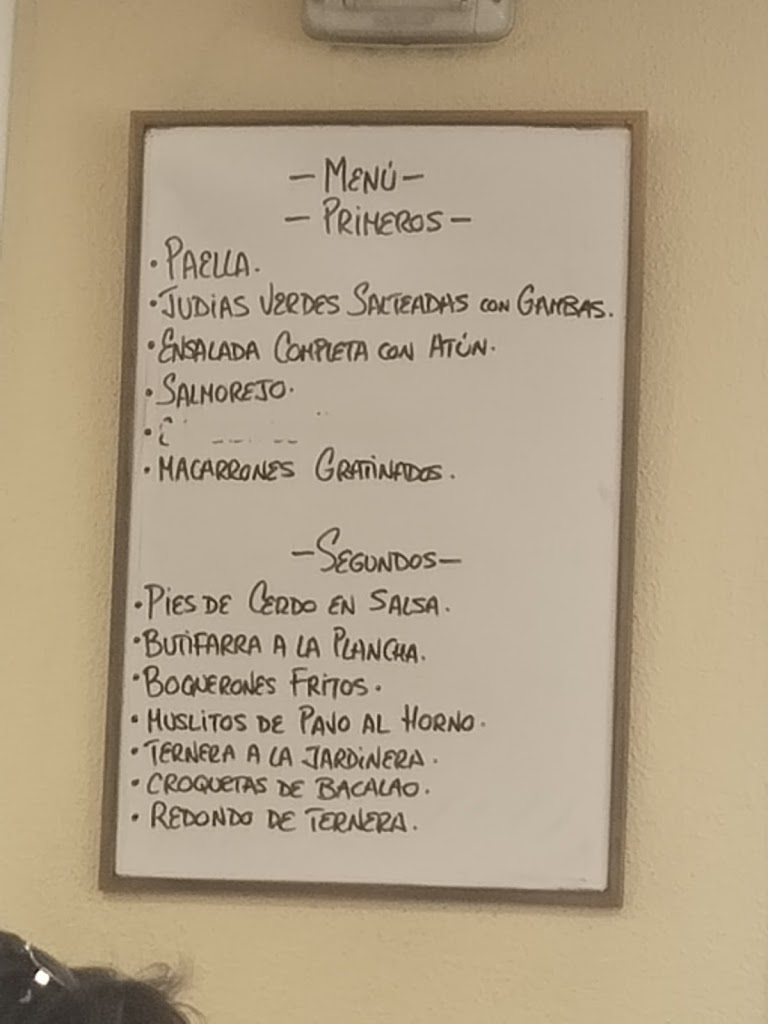 - MENÚ -
- PRIMEROS -
· PAELLA.
· JUDIAS VERDES SALTEADAS CON GAMBAS.
· ENSALADA COMPLETA CON ATÚN.
· SALMOREJO.
· MACARRONES GRATINADOS.
- SEGUNDOS -
· PIES DE CERDO EN SALSA.
· BUTIFARRA A LA PLANCHA.
· BOQUERONES FRITOS.
· MUSLITOS DE PAVO AL HORNO.
· TERNERA A LA JARDINERA.
· CROQUETAS DE BACALAO.
· REDONDO DE TERNERA.